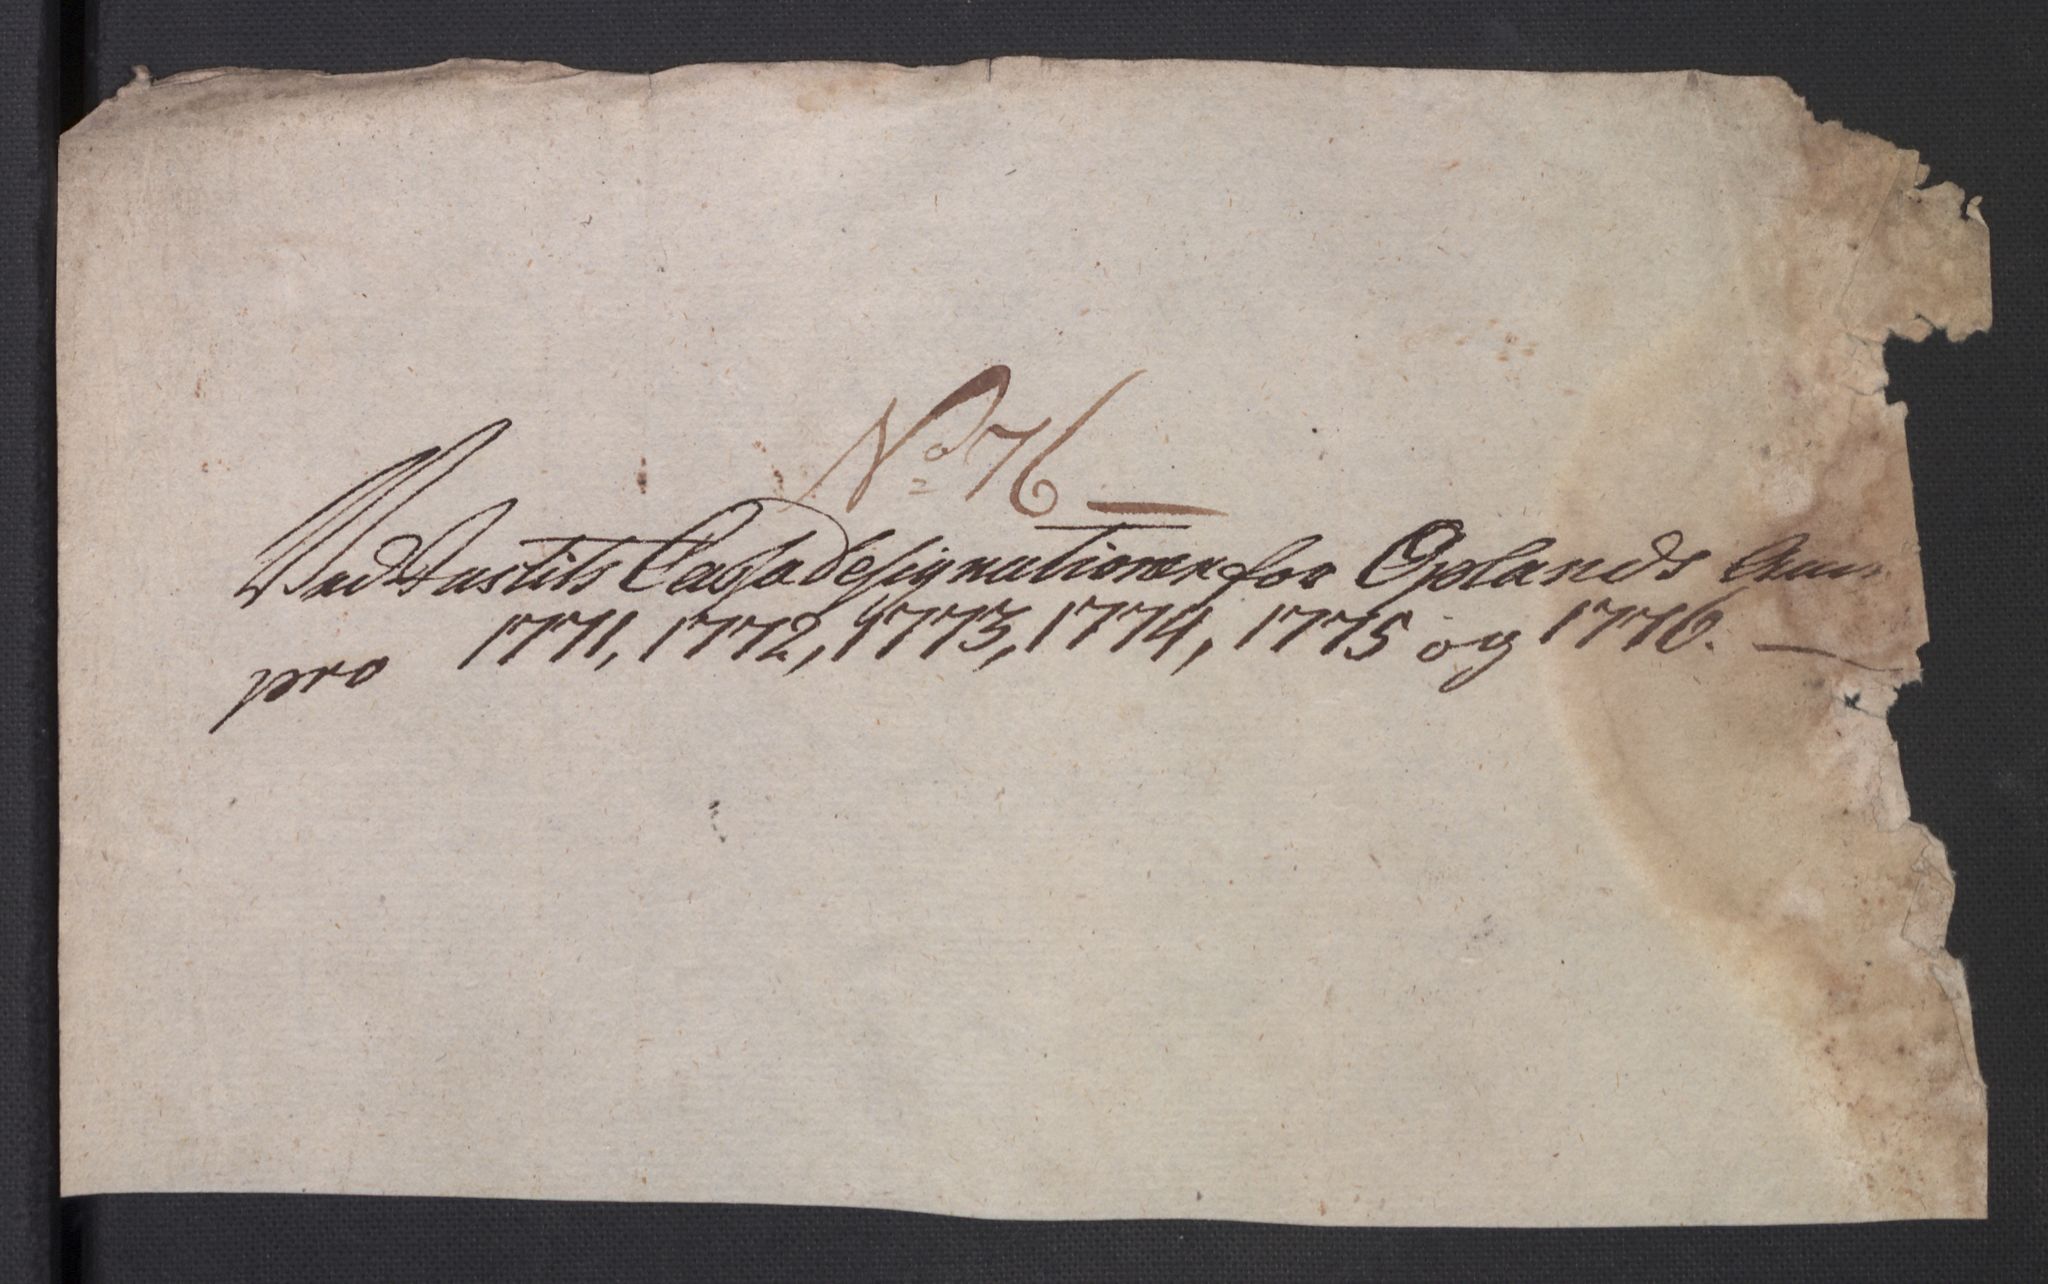 No 76 —
Justits Cassa Designationer for Oplands
pro 1771, 1772, 1773, 1774, 1775 og 1776. —